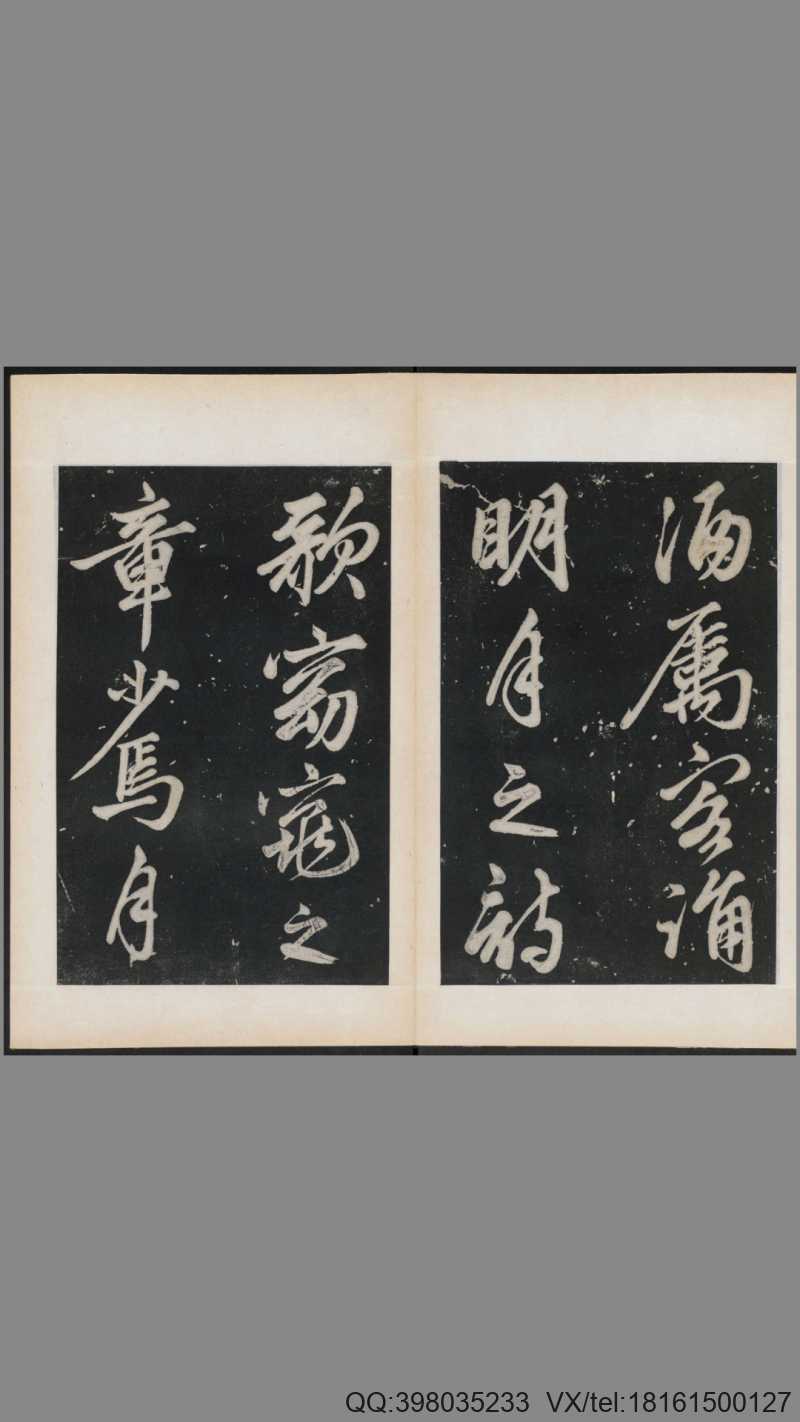 酒属客诵
明月之诗
歌窈窕之
章少焉月
QQ:398035233  VX/tel:18161500127